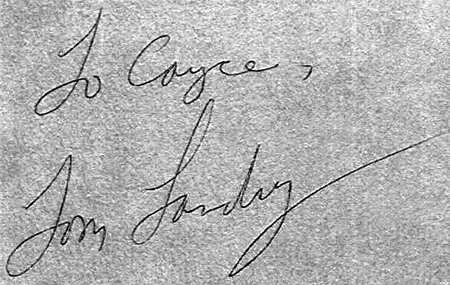 To Cayce,
Tom Landry